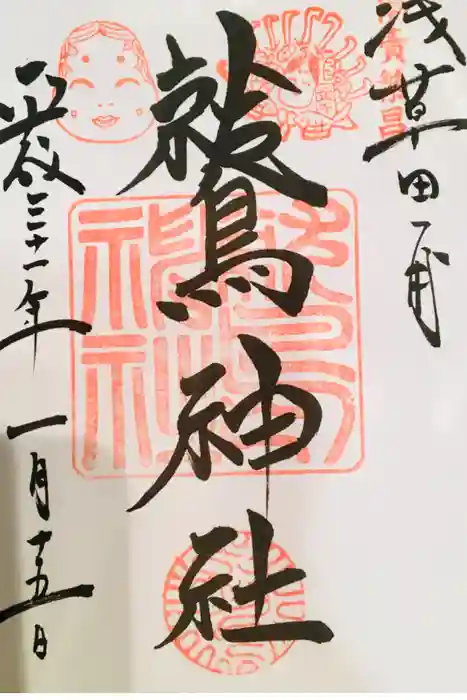 浅草田甫
鷲神社
平成三十一年一月十五日